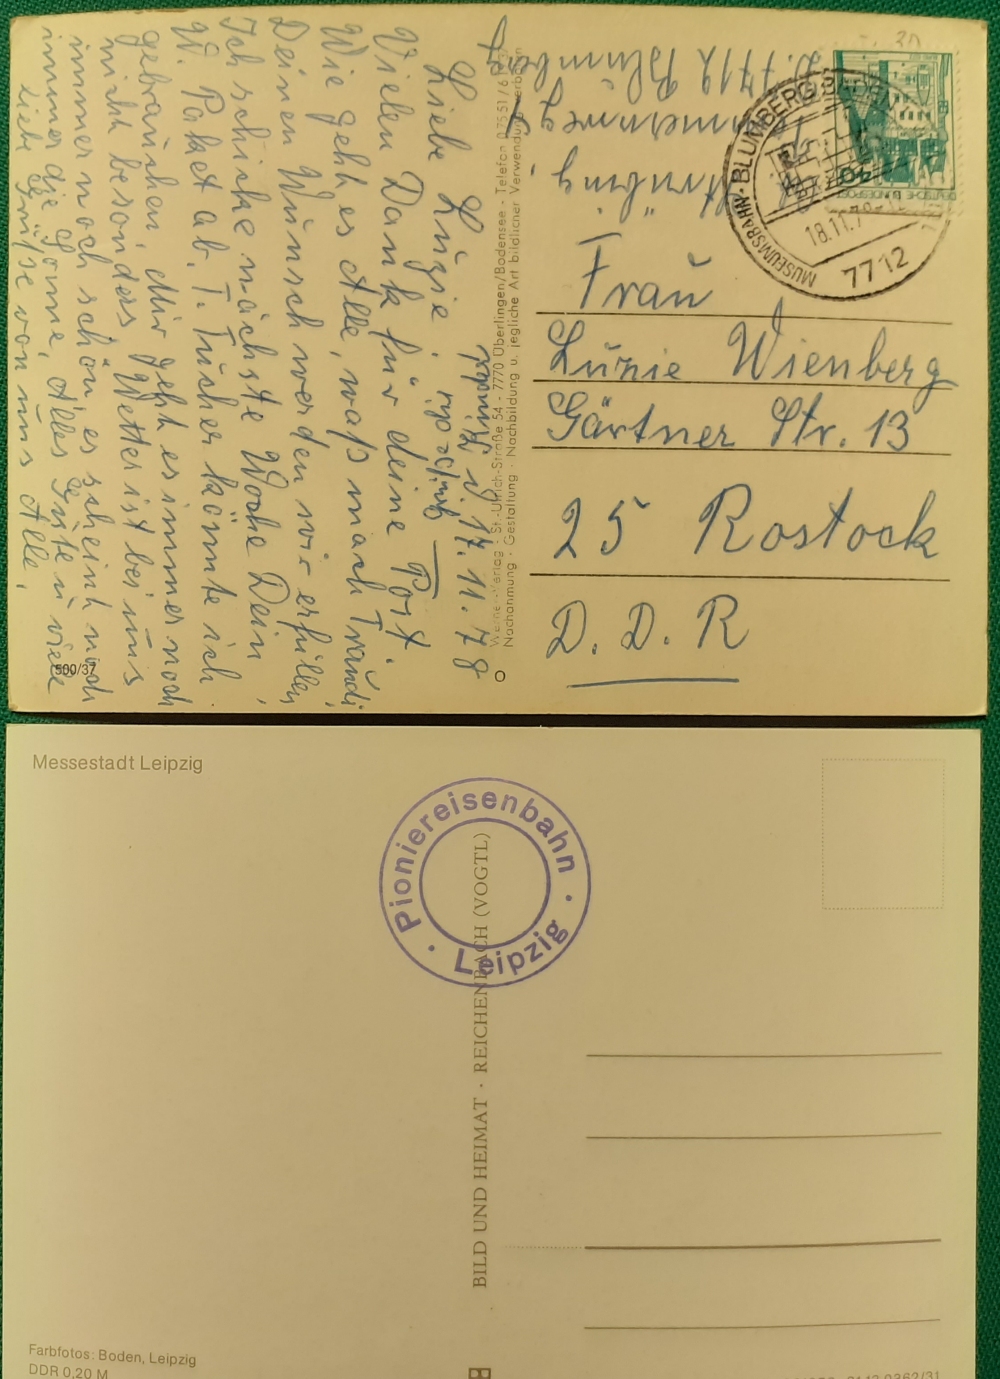 Blumberg d. 17.11.78
Liebe Luzie.
Vielen Dank für deine Post.
Wie geht es Alle, waß mach Traudi,
Deinen Wunsch werden wir erfüllen
Ich schicke nächste Woche Dein
W. Paket ab. T. Tücher könnte ich
gebrauchen. Mir geht es immer noch
nicht besonders. Wetter ist bei uns
immer noch schön, es scheint noch
immer die Sonne, Alles Gute u viele
Liebe Grüße von uns Alle.
500/37
Verlag · St.-Ulrich-Straße 54 - 7770 Überlingen/Bodensee - Telefon 07551/
Nachahmung · Gestaltung · Nachbildung u. jegliche Art bildlicher Verwendung
D. 7712 Blumberg
40
MUSEUMSBAHN · BLUMBERG
18.11.7
7712
Frau
Luzie Wienberg
Gärtner Str. 13
25 Rostock
D. D. R
Messestadt Leipzig
Pioniereisenbahn
· Leipzig ·
BILD UND HEIMAT · REICHENBACH (VOGTL)
Farbfotos: Boden, Leipzig
DDR 0,20 M